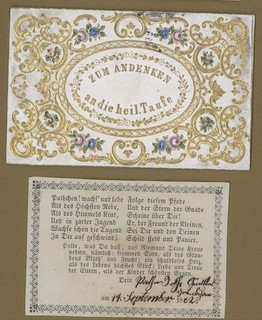 ZUM ANDENKEN
an die heil. Taufe
Pathchen! wach! und lebe
Als des Höchsten Rebe,
Als des Himmels Kind,
Und in zarter Jugend
Wachse schon die Tugend
In Dir auf geschwind!
Folge diesem Pfade
Und der Stern der Gnade
Scheine über Dir!
Er, der Freund der Kleinen,
Sei Dir und den Deinen
Schild stets und Panier.
Halte, was Du hast, das Niemand Deine Krone
nehme, nämlich: frommen Sinn, als des
Glaubens und Frucht; ein
als des Lebens höchstes Glück; Liebe und Treue
der Eltern, als der Kinder schönsten Segen.
Dein
am 14. September 1862